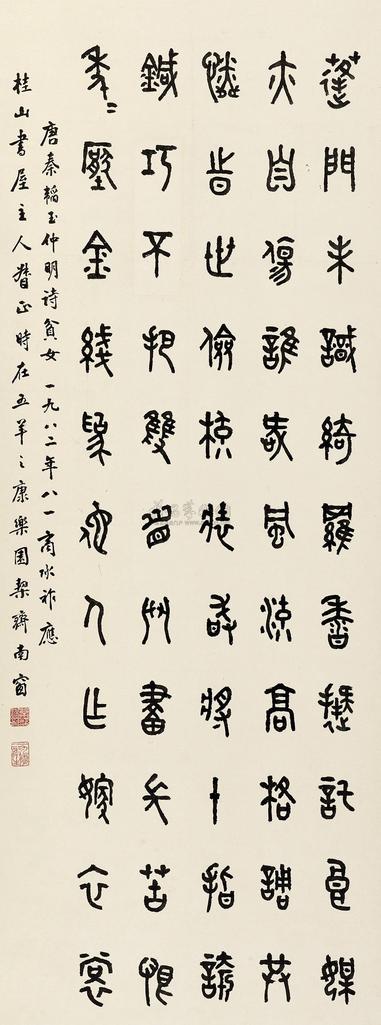 蓬門未識綺羅香擬託良媒
亦自傷誰愛風流高格調共
憐時世儉梳妝敢將十指誇
鍼巧不把雙眉鬥畫長苦恨
年=壓金綫為他人作嫁衣裳
唐秦韜玉仲明詩貧女一九八二年八一商承祚應
桂山書屋主人詧正時在五羊之康樂園栔齋南窗